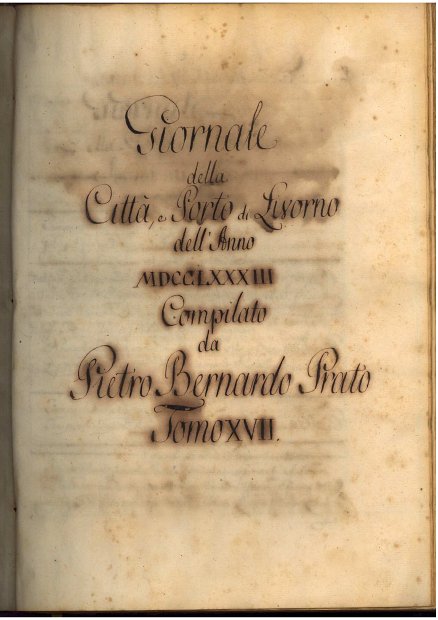 Giornale
della
Città, e Porto di Livorno
dell'Anno
MDCCLXXXIII
Compilato
da
Pietro Bernardo Prato
Tomo XVII.